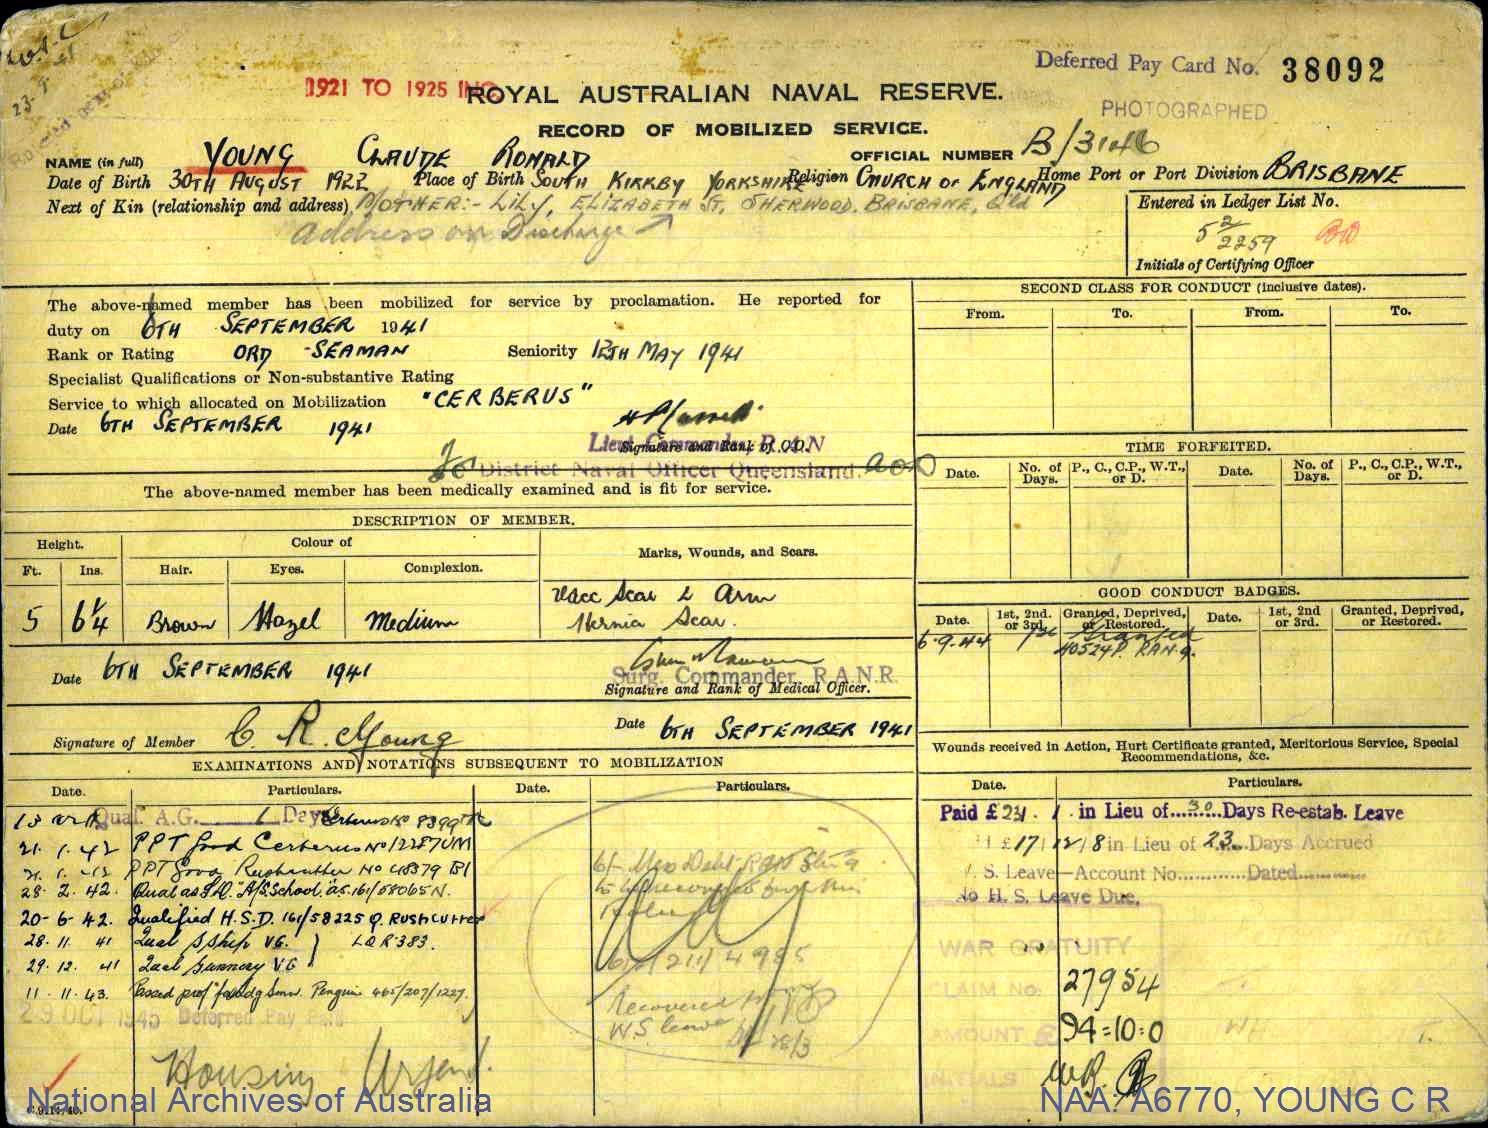 23.9.41
1921 TO 1925 INC
Deferred Pay Card No. 38092
ROYAL AUSTRALIAN NAVAL RESERVE.
PHOTOGRAPHED
RECORD OF MOBILIZED SERVICE.
NAME (in full) YOUNG CLAUDE RONALD OFFICIAL NUMBER B/3146
Date of Birth 30TH AUGUST 1922 Place of Birth SOUTH KIRKBY YORKSHIRE Religion CHURCH OF ENGLAND Home Port or Port Division BRISBANE
Next of Kin (relationship and address) MOTHER:- LILY, ELIZABETH ST, SHERWOOD. BRISBANE, Qld
Address on Discharge
Entered in Ledger List No.
5 2/2259
Initials of Certifying Officer
The above-named member has been mobilized for service by proclamation. He reported for
duty on 6TH SEPTEMBER 1941
Rank or Rating ORD SEAMAN Seniority 12TH MAY 1941
Specialist Qualifications or Non-substantive Rating
Service to which allocated on Mobilization "CERBERUS"
Date 6TH SEPTEMBER 1941
Lieut. Commander, R.A.N
Signature and Rank of C.O.
District Naval Officer Queensland.
The above-named member has been medically examined and is fit for service.
DESCRIPTION OF MEMBER.
Height. Colour of Marks, Wounds, and Scars.
Ft. Ins. Hair. Eyes. Complexion.
5 6¼ Brown Hazel Medium Vacc Scar L Arm
Hernia Scar.
Date 6TH SEPTEMBER 1941
Surg. Commander, R.A.N.R.
Signature and Rank of Medical Officer.
Signature of Member C. R. Young Date 6TH SEPTEMBER 1941
EXAMINATIONS AND NOTATIONS SUBSEQUENT TO MOBILIZATION
Date. Particulars. Date. Particulars.
Qual. A.G. 1 Day Cerberus No 8399
21. 1. 42 PPT Good Cerberus No 12287UM
PPT Good Rushcutter No 48379 B1
28. 2. 42. Qual as S.D. "A/S School" as. 161/58065 N.
20-6-42. Qualified H.S.D. 161/58225 Q. RUSHCUTTER
28. 11. 41 Qual S Ship VG.
LQR 383.
29. 12. 41 Qual Gunnery VG
11. 11. 43. Passed prof for Ldg Smn. Penguin 465/207/1227.
29 OCT 1945 Deferred Pay Paid
Housing Urgent.
Recovered
W.S. leave
28/3
SECOND CLASS FOR CONDUCT (inclusive dates).
From. To. From. To.
TIME FORFEITED.
Date. No. of Days. P., C., C.P., W.T., or D. Date. No. of Days. P., C., C.P., W.T., or D.
GOOD CONDUCT BADGES.
Date. 1st, 2nd. or 3rd. Granted, Deprived, or Restored. Date. 1st, 2nd or 3rd. Granted, Deprived, or Restored.
6-9-44 1st Granted
40524P. RAN.9.
Wounds received in Action, Hurt Certificate granted, Meritorious Service, Special
Recommendations, &c.
Date. Particulars.
Paid £ 24. 1. in Lieu of 30 Days Re-estab. Leave
£17/12/8 in Lieu of 23 Days Accrued
S. Leave—Account No............Dated............
No H. S. Leave Due.
WAR GRATUITY
CLAIM No: 27954
AMOUNT £ 94=10:0
INITIALS
C.9.11/40.
National Archives of Australia
NAA: A6770, YOUNG C R